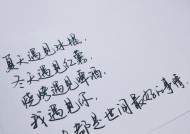 夏天遇见冰棍，
冬天遇见红薯，
晚晚遇见啤酒，
我遇见你，
都是世间最好的事情